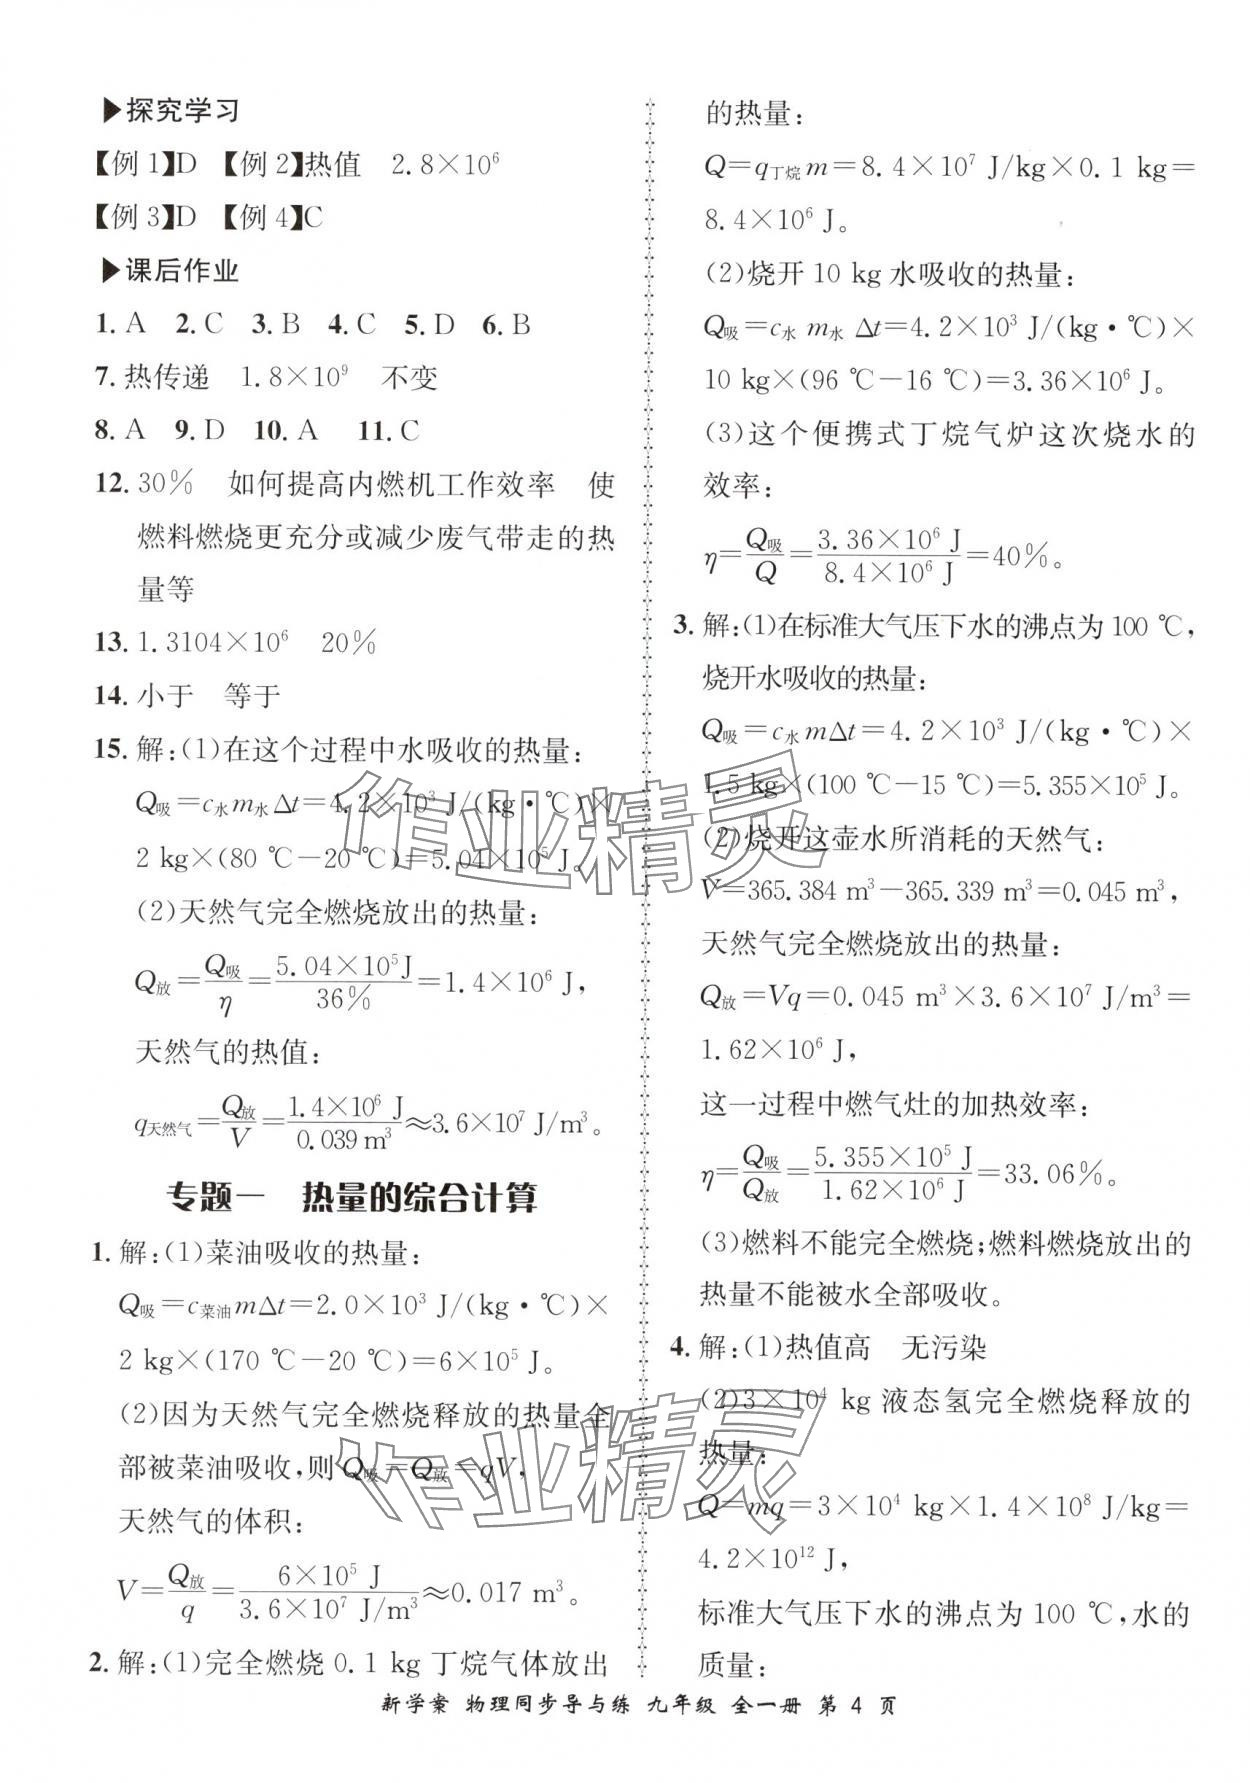 ▶探究学习
【例1】D 【例2】热值 2.8×10⁶
【例3】D 【例4】C
▶课后作业
1. A 2. C 3. B 4. C 5. D 6. B
7. 热传递 1.8×10⁹ 不变
8. A 9. D 10. A 11. C
12. 30% 如何提高内燃机工作效率 使
燃料燃烧更充分或减少废气带走的热
量等
13. 1.3104×10⁶ 20%
14. 小于 等于
15. 解:(1)在这个过程中水吸收的热量:
Q吸=c水m水Δt=4.2×10³ J/(kg·℃)×
2 kg×(80 ℃-20 ℃)=5.04×10⁵ J。
(2)天然气完全燃烧放出的热量:
Q放=Q吸/η=5.04×10⁵J/36%=1.4×10⁶ J,
天然气的热值:
q天然气=Q放/V=1.4×10⁶ J/0.039 m³≈3.6×10⁷ J/m³。
专题一 热量的综合计算
1. 解:(1)菜油吸收的热量:
Q吸=c菜油mΔt=2.0×10³ J/(kg·℃)×
2 kg×(170 ℃-20 ℃)=6×10⁵ J。
(2)因为天然气完全燃烧释放的热量全
部被菜油吸收,则Q吸=Q放=qV,
天然气的体积:
V=Q放/q=6×10⁵ J/3.6×10⁷ J/m³≈0.017 m³。
2. 解:(1)完全燃烧0.1 kg丁烷气体放出
的热量:
Q=q丁烷m=8.4×10⁷ J/kg×0.1 kg=
8.4×10⁶ J。
(2)烧开10 kg水吸收的热量:
Q吸=c水 m水 Δt=4.2×10³ J/(kg·℃)×
10 kg×(96 ℃-16 ℃)=3.36×10⁶ J。
(3)这个便携式丁烷气炉这次烧水的
效率:
η=Q吸/Q=3.36×10⁶ J/8.4×10⁶ J=40%。
3. 解:(1)在标准大气压下水的沸点为100 ℃,
烧开水吸收的热量:
Q吸=c水mΔt=4.2×10³ J/(kg·℃)×
1.5 kg×(100 ℃-15 ℃)=5.355×10⁵ J。
(2)烧开这壶水所消耗的天然气:
V=365.384 m³-365.339 m³=0.045 m³,
天然气完全燃烧放出的热量:
Q放=Vq=0.045 m³×3.6×10⁷ J/m³=
1.62×10⁶ J,
这一过程中燃气灶的加热效率:
η=Q吸/Q放=5.355×10⁵ J/1.62×10⁶ J=33.06%。
(3)燃料不能完全燃烧;燃料燃烧放出的
热量不能被水全部吸收。
4. 解:(1)热值高 无污染
(2)3×10⁴ kg液态氢完全燃烧释放的
热量:
Q=mq=3×10⁴ kg×1.4×10⁸ J/kg=
4.2×10¹² J,
标准大气压下水的沸点为100 ℃,水的
质量:
新学案 物理同步导与练 九年级 全一册 第 4 页
作业精灵
作业精灵